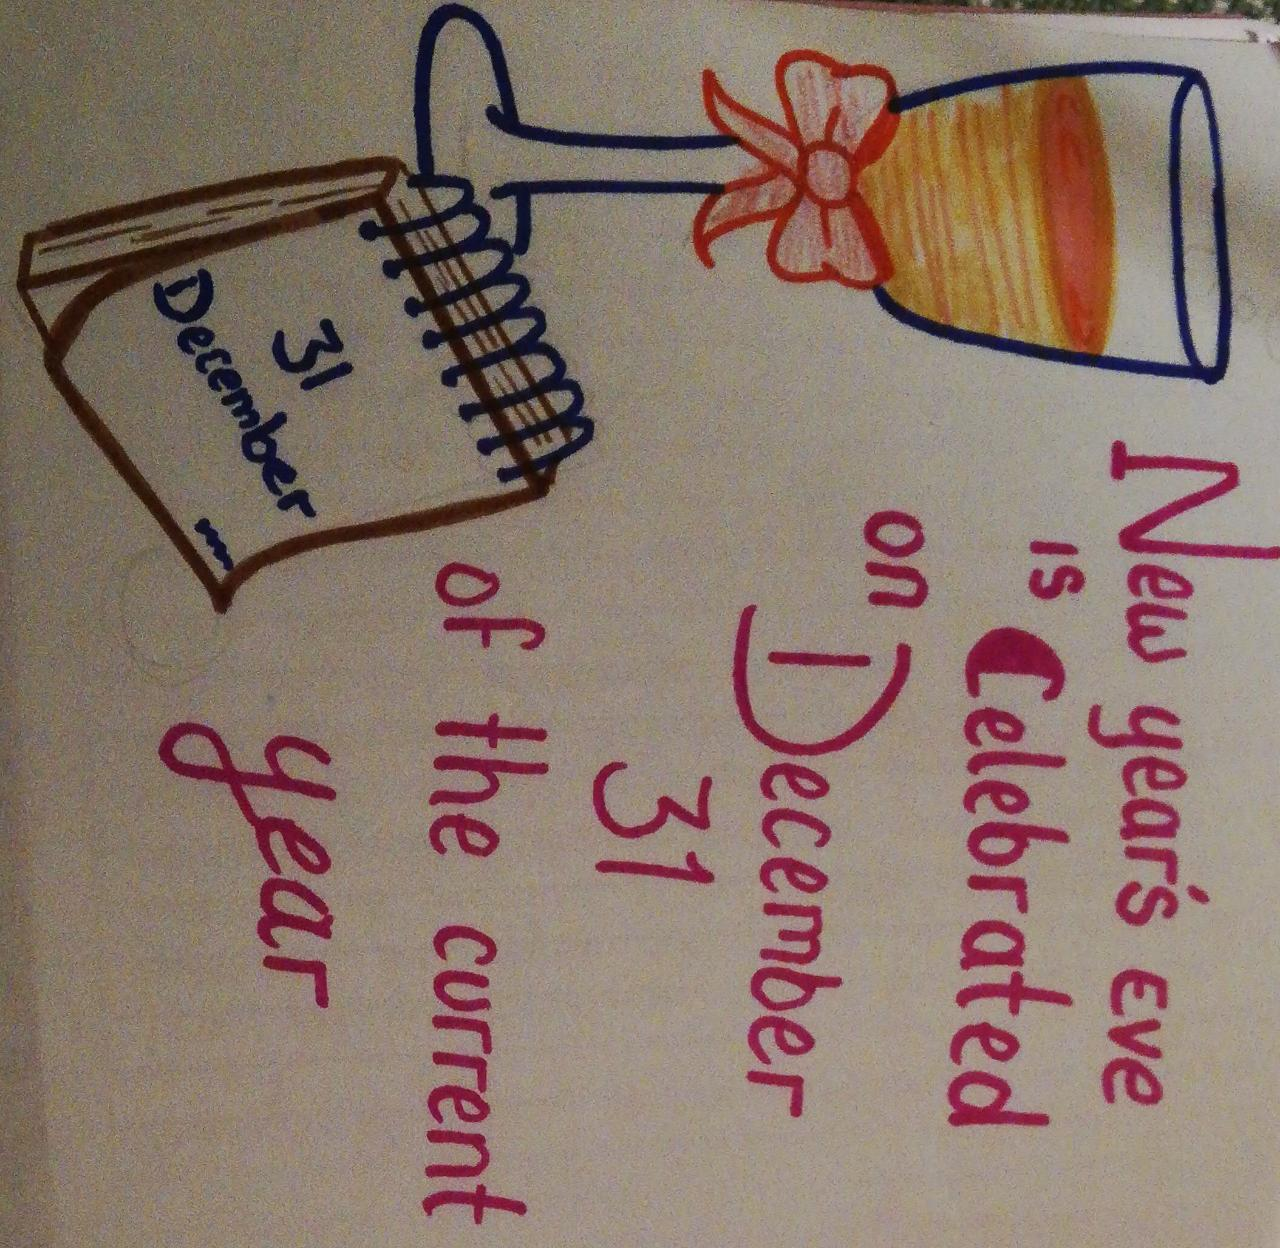 New year's Eve
is Celebrated
on
December
31
of the current
year
31
December